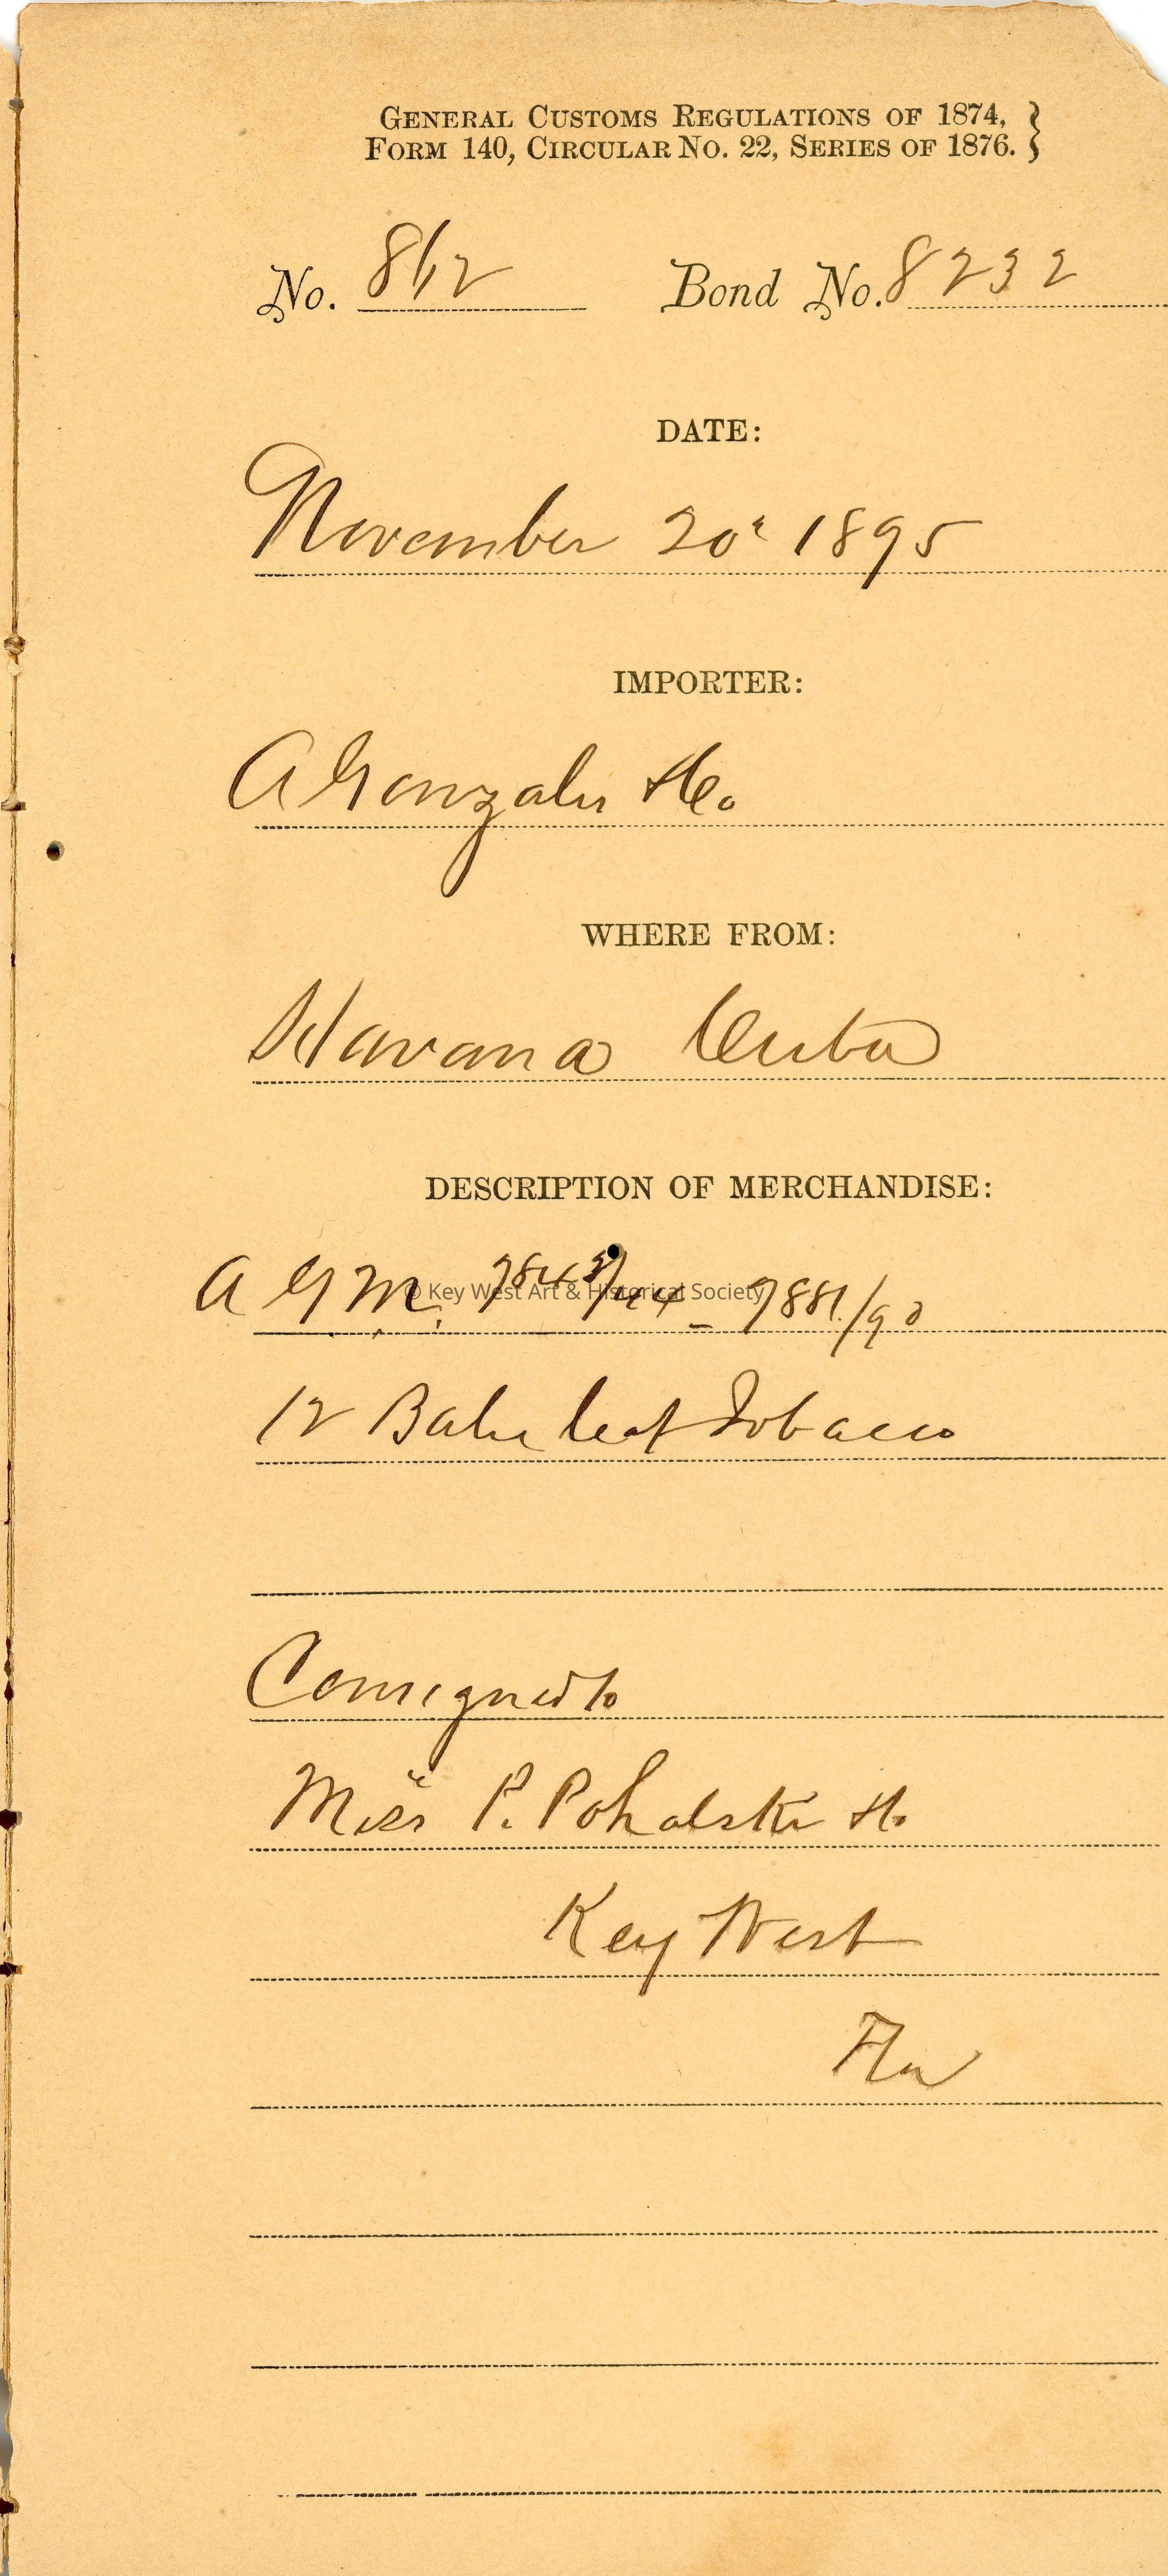 GENERAL CUSTOMS REGULATIONS OF 1874, }
FORM 140, CIRCULAR NO. 22, SERIES OF 1876. }
No. 812 Bond No. 8232
DATE:
November 20" 1895
IMPORTER:
A Gonzales & Co.
WHERE FROM:
Havana Cuba
DESCRIPTION OF MERCHANDISE:
A G M. 7843/44 - 7881/90
© Key West Art & Historical Society
12 Bales leaf Tobacco
Consigned to
P. Pohalski
Key West
Fla